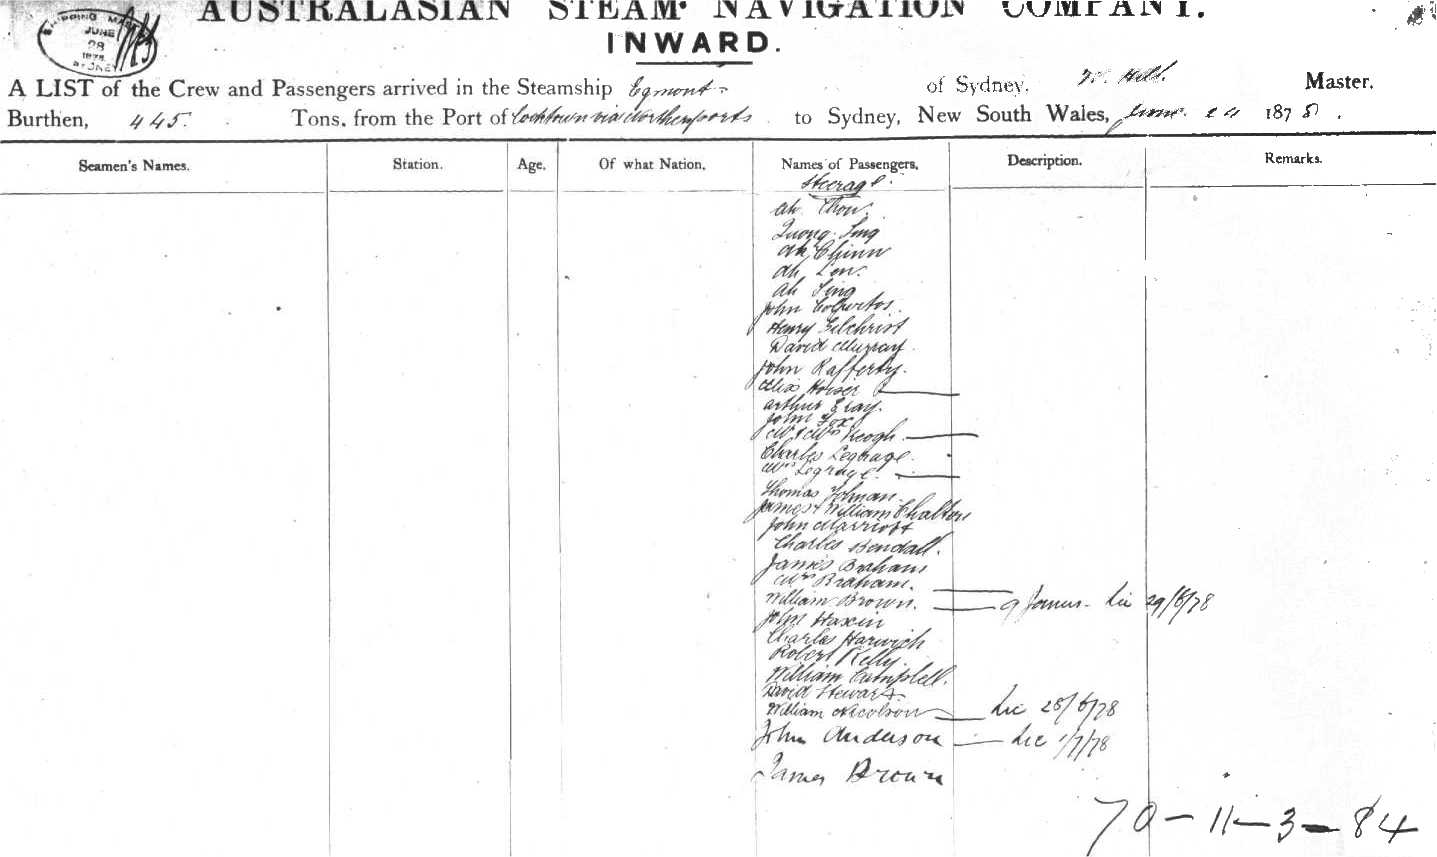 AUSTRALASIAN STEAM NAVIGATION COMPANY.
SHIPPING MASTER
JUNE
28
1878
SYDNEY
INWARD.
A LIST of the Crew and Passengers arrived in the Steamship Egmont of Sydney, W. Hill. Master.
Burthen, 445. Tons, from the Port of Cooktown via Northern ports to Sydney, New South Wales, June 24 1878.
Seamen's Names. Station. Age. Of what Nation. Names of Passengers. Description. Remarks.
Steerage.
Ah Chou.
Quong Sing
Ah Chinn
Ah Lon.
Ah Sing
John
Henry Gilchrist
David Murray
John Rafferty.
Alex
Arthur Gray.
John Fox
Mr & Mrs Keogh.
Charles Legrage.
Mrs Legrage.
Thomas Tolman.
James & William Chalton
John Marriott
Charles Bendall.
James Braham
Mrs Braham.
William Brown. 29/6/78
John Haxin
Charles Harwich
Robert Kelly.
William Campbell.
David Stewart.
William Nicolson Lic 28/6/78
John Anderson Lic 1/7/78
James Brown
70-11-3-84